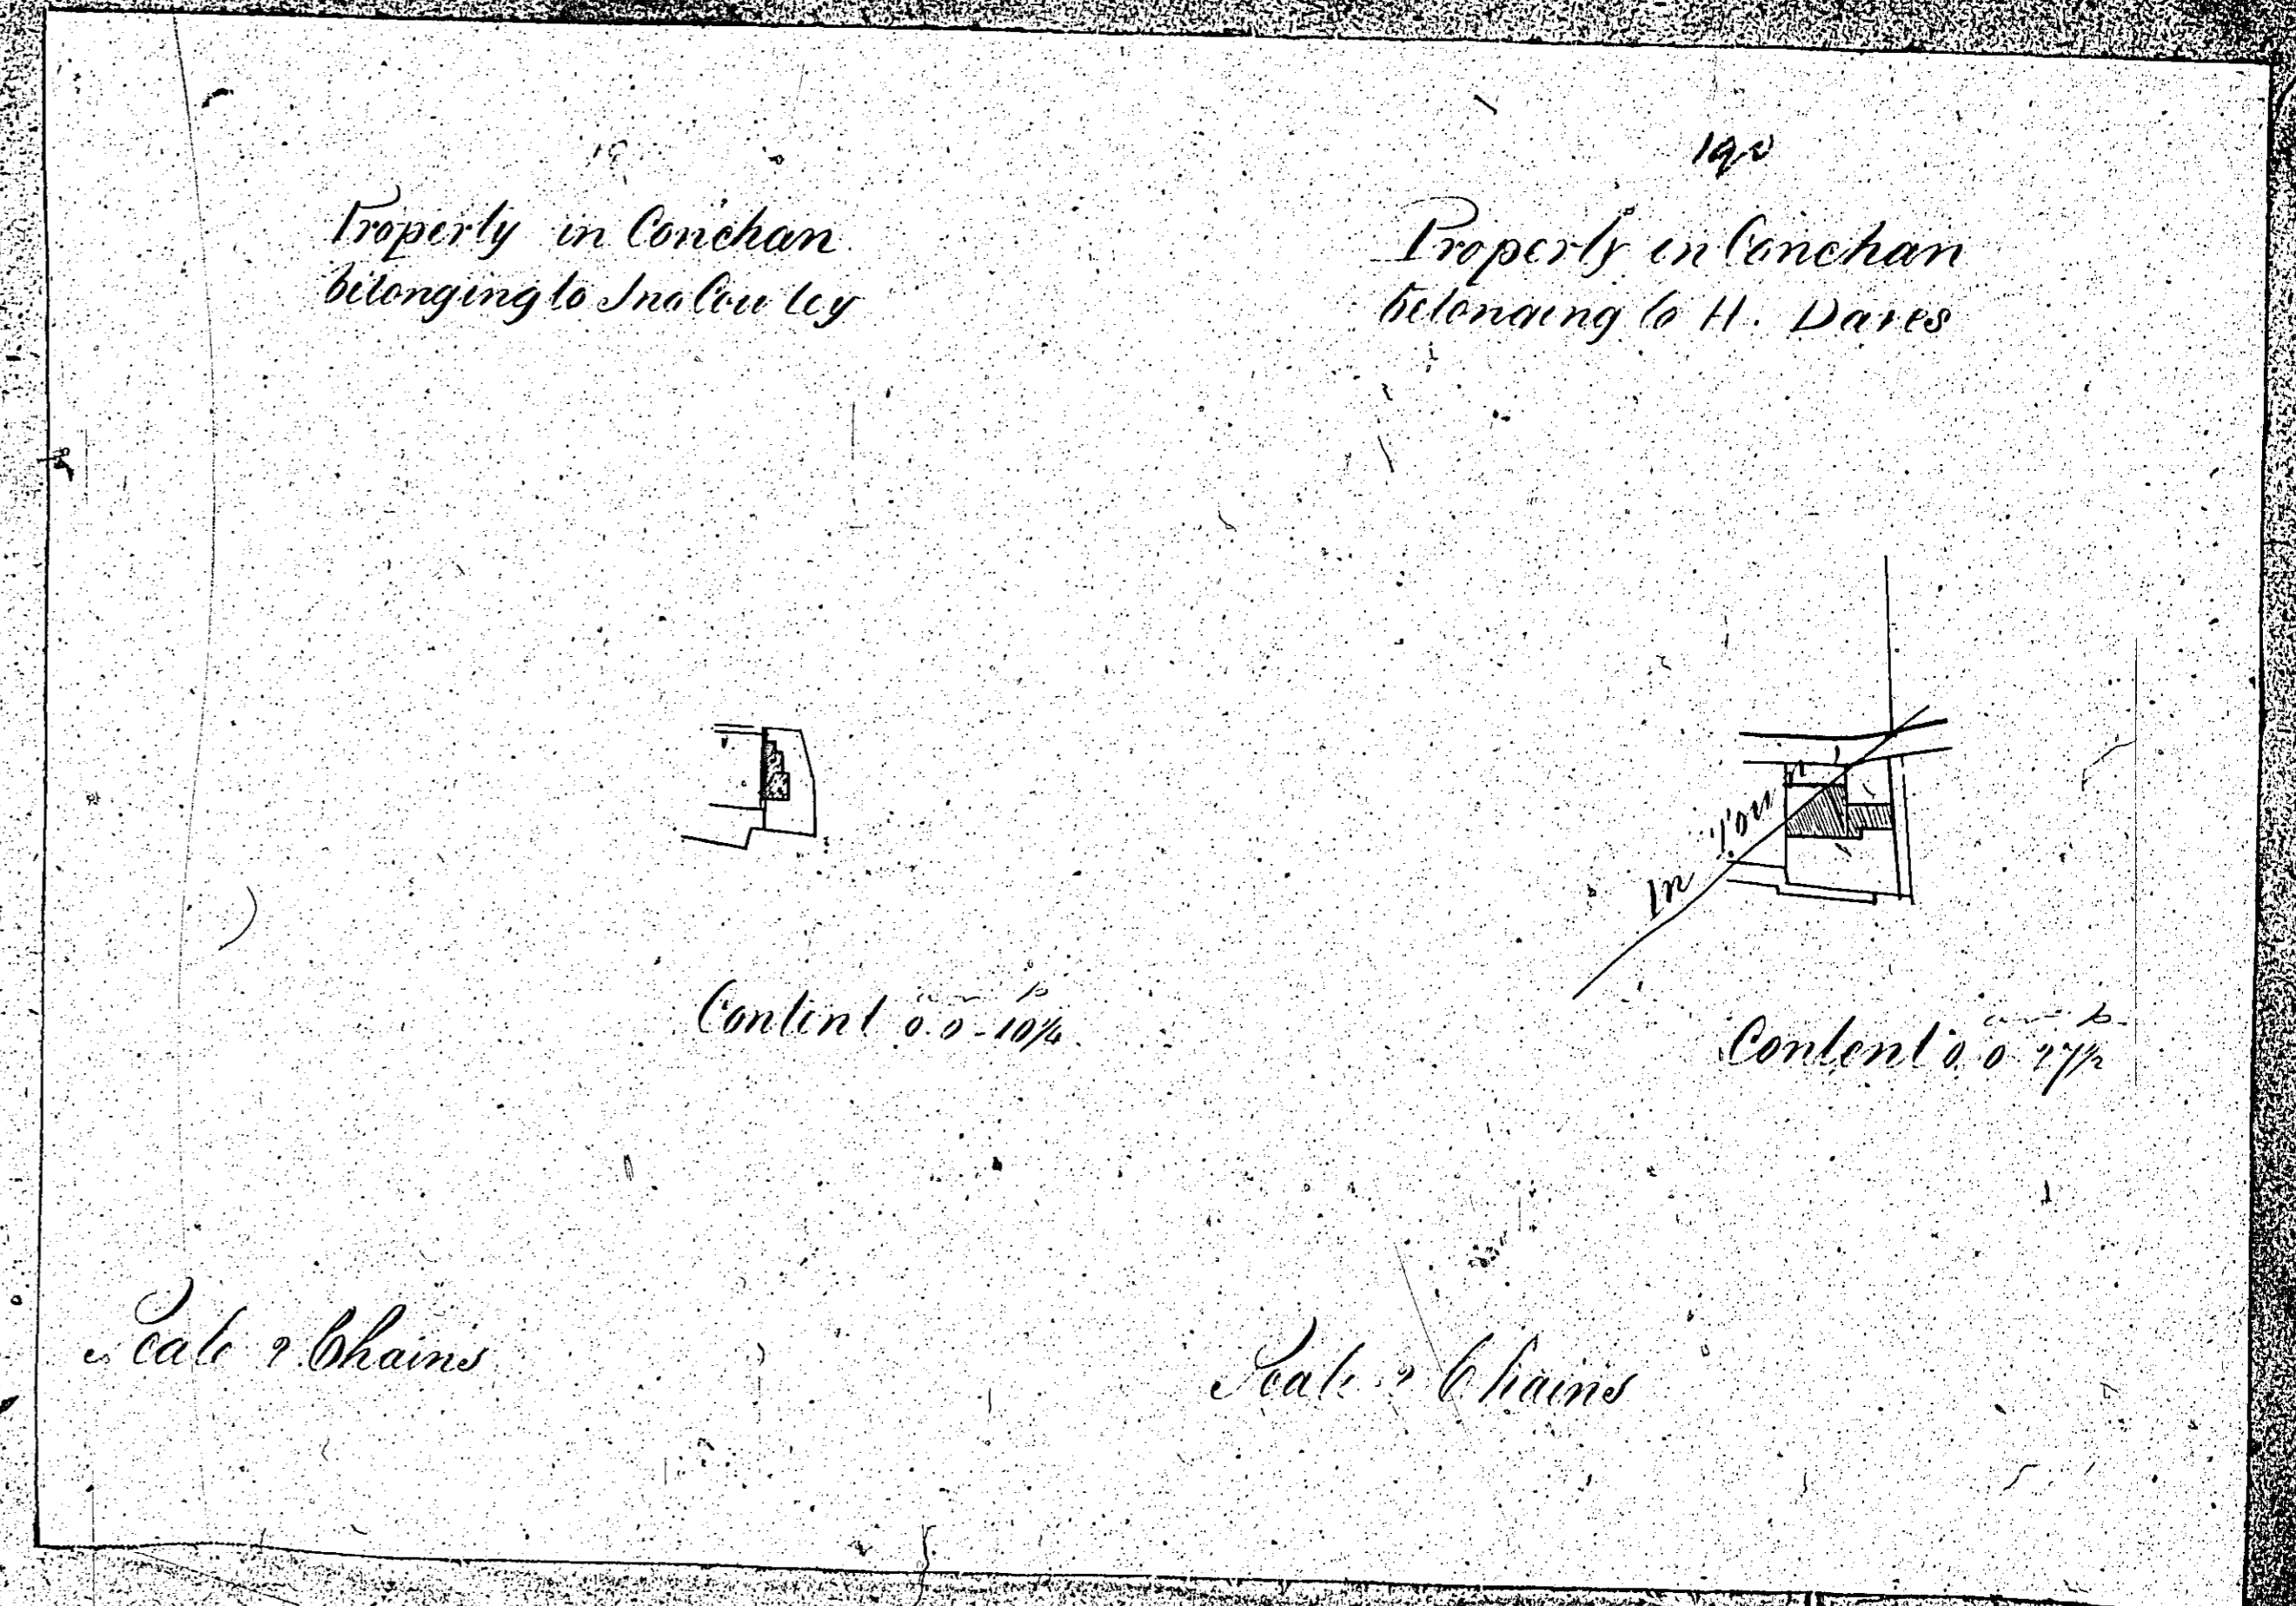 Property in Conchan
belonging to Jno Cowley
Content a r p
0. 0 - 10 1/4
Scale 2 Chains
190
Property in Conchan
belonging to H. Daves
In Town
Content a r p
0. 0 27 1/2
Scale 2 Chains